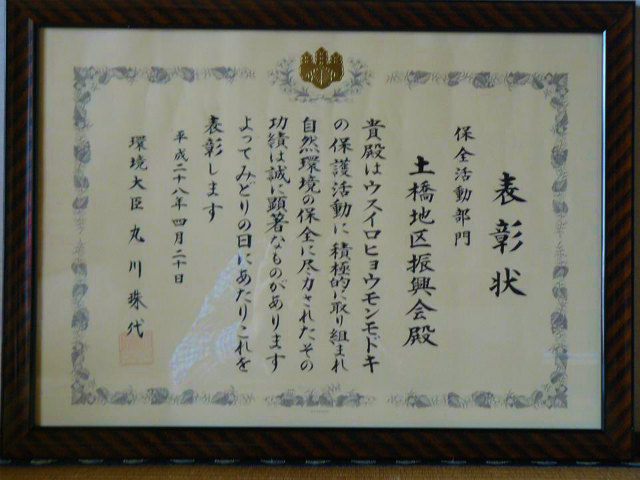 表彰状
保全活動部門
土橋地区振興会殿
貴殿はウスイロヒョウモンモドキ
の保護活動に積極的に取り組まれ
自然環境の保全に尽力されたその
功績は誠に顕著なものがあります
よってみどりの日にあたりこれを
表彰します
平成二十八年四月二十日
環境大臣 丸川珠代